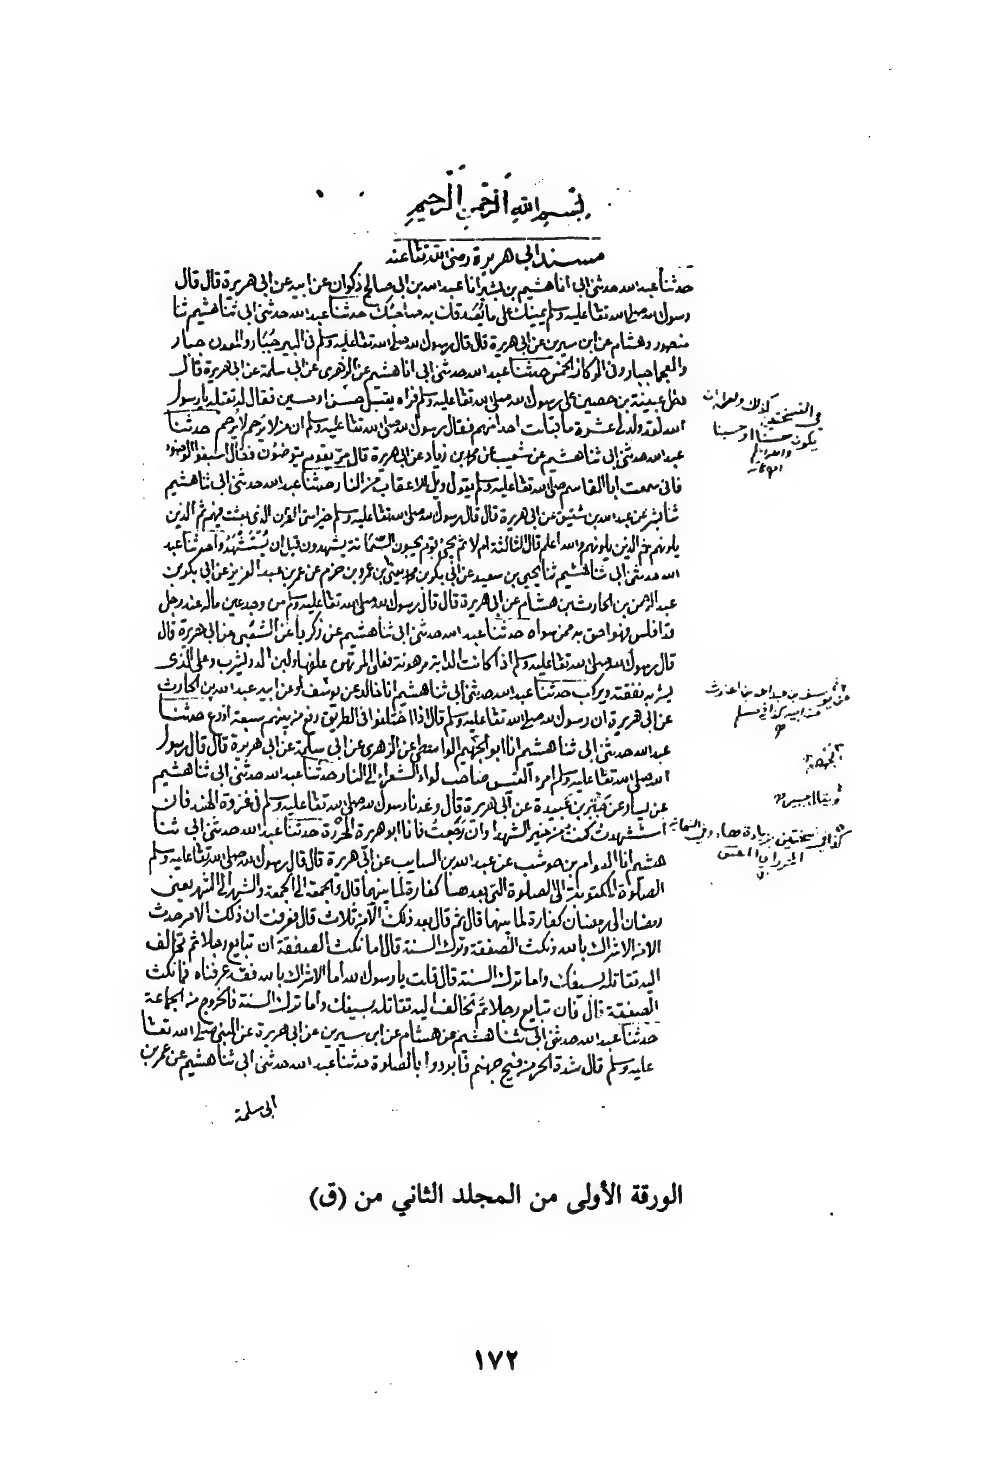 بسم الله الرحمن الرحيم
مسند ابى هريرة رضى الله تعا عنه
حدثنا عبد الله حدثنى ابى انا هشيم بن بشير انا عبد الله بن ابى صالح ذكوان عن ابيه عن ابى هريرة قال قال
رسول الله صلى الله تعا عليه وسلم يمينك على ما يصدقك به صاحبك حدثنا عبد الله حدثنى ابى ثنا هشيم ثنا
منصور وهشام عن ابن سيرين عن ابى هريرة قال قال رسول الله صلى الله تعا عليه وسلم فى البير جبار والمعدن جبار
والعجما جبار وفى الركاز الخمس حدثنا عبد الله حدثنى ابى انا هشيم عن الزهرى عن ابى سلمة عن ابى هريرة قال
دخل عيينة بن حصين على رسول الله صلى الله تعا عليه وسلم فراه يقبل حسنا او حسين فقال له تقبله يا رسول
الله لقد ولد لى عشرة ما قبلت احدا منهم فقال رسول الله صلى الله تعا عليه وسلم ان من لا يرحم لا يرحم حدثنا
عبد الله حدثنى ابى ثنا هشيم عن شعبة عن محمد بن زياد عن ابى هريرة قال مر بقوم يتوضؤن فقال اسبغوا الوضو
فانى سمعت ابا القاسم صلى الله تعا عليه وسلم يقول ويل للاعقاب من النار حدثنا عبد الله حدثنى ابى ثنا هشيم
ثنا ابو بشر عن عبد الله بن شقيق عن ابى هريرة قال قال رسول الله صلى الله تعا عليه وسلم خير امتى القرن الذى بعثت فيهم ثم الذين
يلونهم ثم الذين يلونهم والله اعلم قال الثالثة ام لا ثم يجئ قوم يحبون السمانة يشهدون قبل ان يستشهدوا حدثنا عبد
الله حدثنى ابى ثنا هشيم ثنا يحيى بن سعيد عن ابى بكر بن محمد بن عمرو بن حزم عن عمر بن عبد العزيز عن ابى بكر بن
عبد الرحمن بن الحارث بن هشام عن ابى هريرة قال قال رسول الله صلى الله تعا عليه وسلم من وجد عين ماله عند رجل
قد افلس فهو احق به ممن سواه حدثنا عبد الله حدثنى ابى ثنا هشيم عن زكريا عن الشعبى عن ابى هريرة قال
قال رسول الله صلى الله تعا عليه وسلم اذا كانت الدابة مرهونة فعلى المرتهن علفها ولبن الدر يشرب وعلى الذى
يشربه نفقته ويركب حدثنا عبد الله حدثنى ابى ثنا هشيم انا خالد عن يوسف او عن ابيه عبد الله بن الحارث
عن ابى هريرة ان رسول الله صلى الله تعا عليه وسلم قال اذا اختلفوا فى الطريق رفع من بينهم سبعة اذرع حدثنا
عبد الله حدثنى ابى ثنا هشيم انا ابو الجهيم الواسطى عن الزهرى عن ابى سلمة عن ابى هريرة قال قال رسول
الله صلى الله تعا عليه وسلم امرء القيس صاحب لواء الشعراء الى النار حدثنا عبد الله حدثنى ابى ثنا هشيم
عن سيار عن جبر بن عبيدة عن ابى هريرة قال وعدنا رسول الله صلى الله تعا عليه وسلم فى غزوة الهند فان
استشهدت كنت من خير الشهدا وان رجعت فانا ابو هريرة المحررة حدثنا عبد الله حدثنى ابى ثنا
هشيم انا العوام بن حوشب عن عبد الله بن السايب عن ابى هريرة قال قال رسول الله صلى الله تعا عليه وسلم
الصلوة المكتوبة الى الصلوة التى بعدها كفارة لما بينهما قال والجمعة الى الجمعة والشهر الى الشهر يعنى
رمضان الى رمضان كفارة لما بينهما قال ثم قال بعد ذلك الا من ثلاث قال فعرفت ان ذلك الامر حدث
الا من الاشراك بالله ونكث الصفقة وترك السنة قال اما نكث الصفقة ان تبايع رجلا ثم تخالف
اليه تقاتله بسيفك واما ترك السنة قال قلت يا رسول الله اما الاشراك بالله فقد عرفناه فما نكث
الصفقة قال فان تبايع رجلا ثم تخالف اليه تقاتله بسيفك واما ترك السنة فالخروج من الجماعة
حدثنا عبد الله حدثنى ابى ثنا هشيم عن هشام عن ابن سيرين عن ابى هريرة عن النبى صلى الله تعا
عليه وسلم قال شدة الحر من فيح جهنم فابردوا بالصلوة حدثنا عبد الله حدثنى ابى ثنا هشيم عن عمر بن
ابى سلمة
الورقة الأولى من المجلد الثاني من (ق)
١٧٢